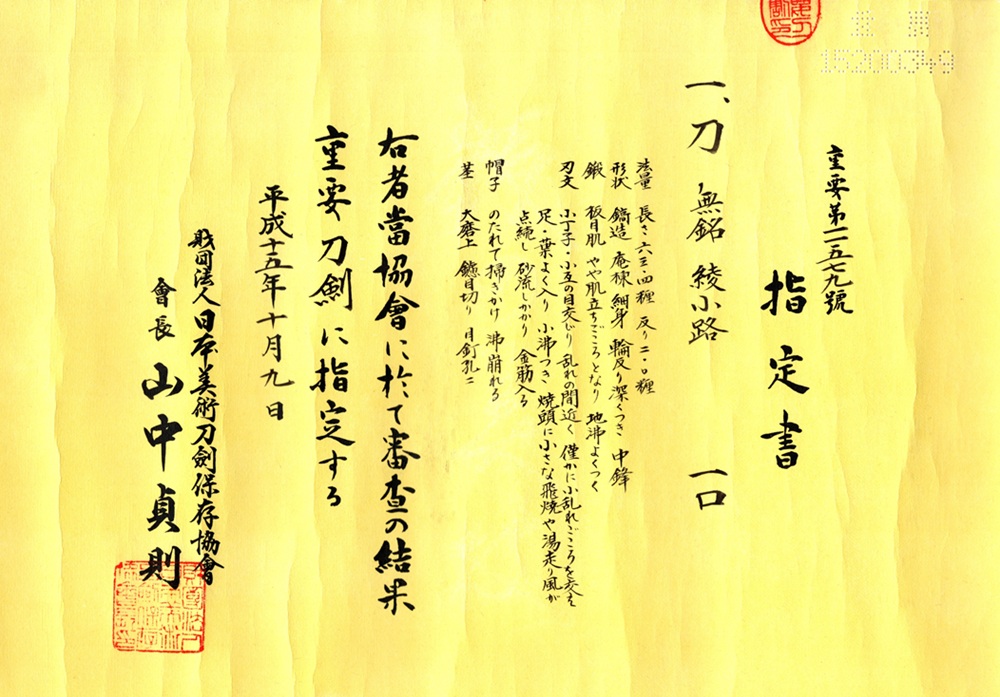 15200349
重要第一一五七九號
指定書
一、刀 無銘 綾小路 一口
法量 長さ 六三・四糎 反り 二・〇糎
形状 鎬造 庵棟 細身 輪反り深くつき 中鋒
鍛 板目肌 やや肌立ちごころとなり 地沸よくつく
刃文 小丁子・小互の目交じり 乱れの間近く 僅かに小乱れごころを交え
足・葉よく入り 小沸つき 焼頭に小さな飛焼や湯走り風が
点続し 砂流しかかり 金筋入る
帽子 のたれて掃きかけ 沸崩れる
茎 大磨上 鑢目切り 目釘孔二
右者當協會に於て審査の結果
重要刀剣に指定する
平成十五年十月九日
財団法人日本美術刀劍保存協會
會長 山中貞則